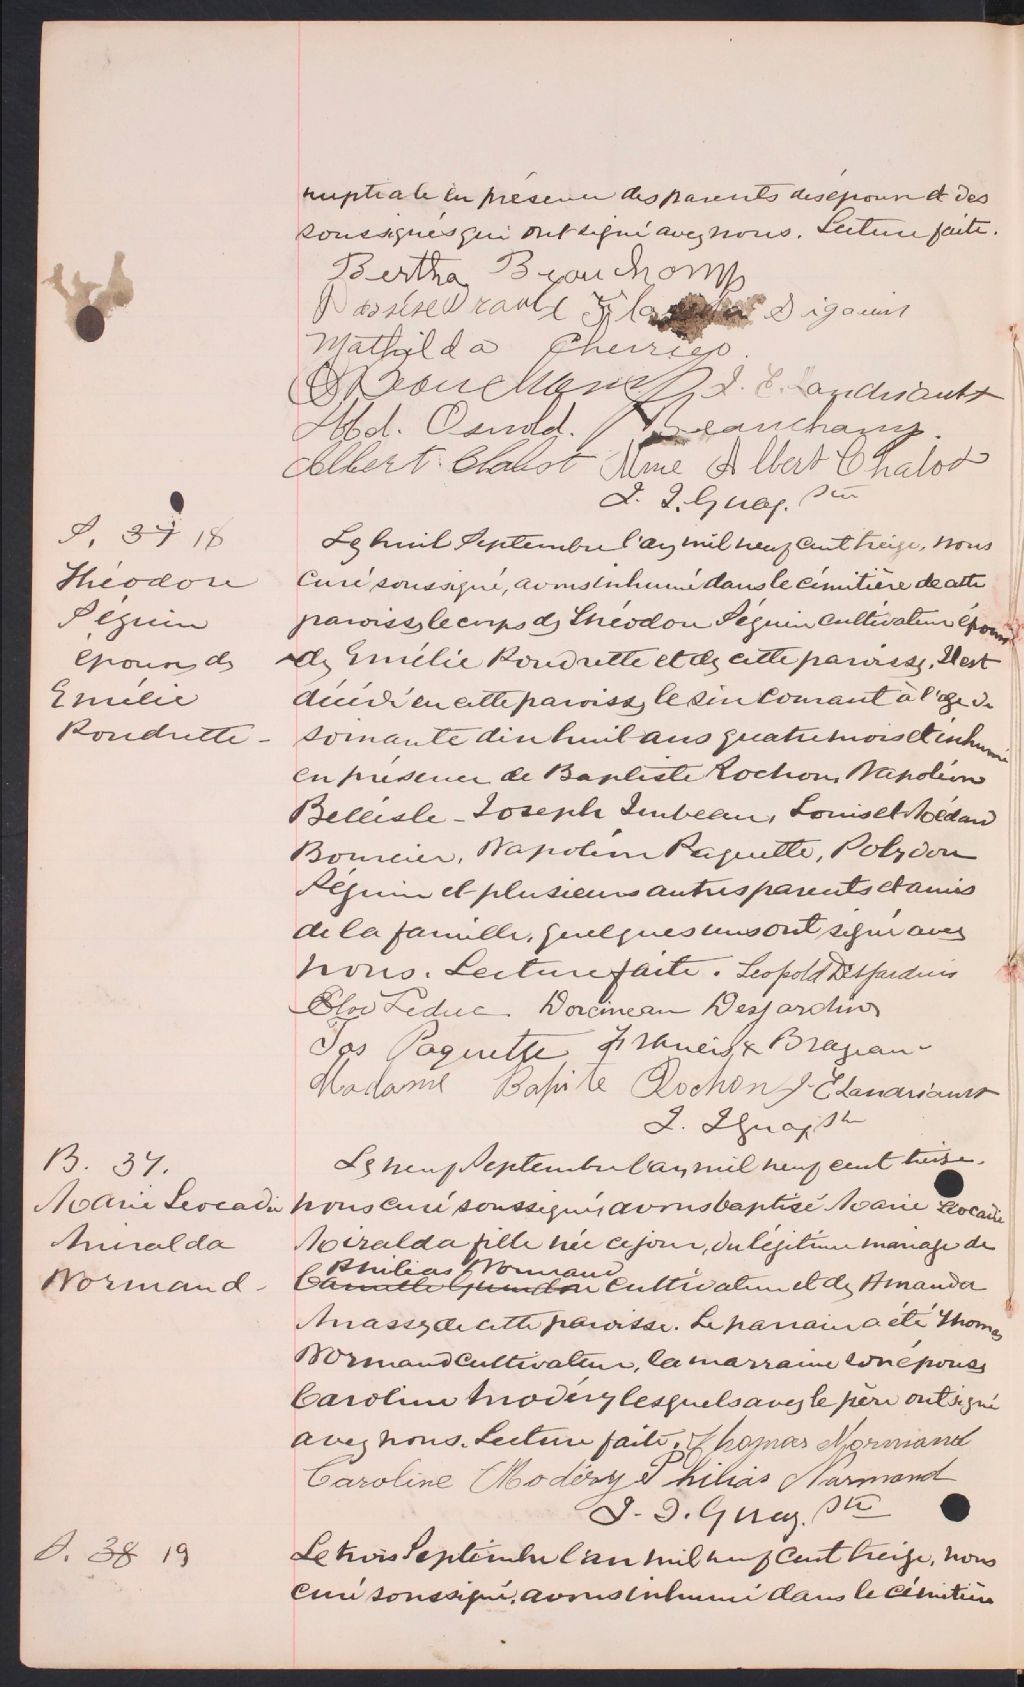 nuptiale en présence des parents des époux et des
soussignés qui ont signé avec nous. Lecture faite.
Bertha Beauchamp
Digouin
Mathilda Cherrier.
O Beauchamp J. E. Landriault
Md. Oswold. Beauchamp
Albert Chalut Mme Albert Chalut
J. I. Guay. Ptre
S. 37 18
Théodore
Séguin
époux de
Emélie
Rondrette -
Le huit Septembre l'an mil neuf cent treize, nous
curé soussigné, avons inhumé dans le cémitière de cette
paroisse, le corps de Théodore Séguin cultivateur époux
de Emélie Rondrette et de cette paroisse. Il est
décédé en cette paroisse, le six courant à l'age de
soixante dix huit ans quatre mois et inhumé
en présence de Baptiste Rochon, Napoléon
Bellisle - Joseph Imbeau, Louis et Médard
Bourcier, Napoléon Paquette, Polydore
Séguin et plusieurs autres parents et amis
de la famille, quelques uns ont signé avec
nous. Lecture faite. Leopold Desjardins
Eloi Leduc Dorcineau Desjardins
Jos Paquette Francis x Brazeau
Madame Baptite Rochon J. E Landriault
J. I Guay Ptre
B. 37.
Marie Leocadie
Miralda
Normand -
Le neuf Septembre l'an mil neuf cent treise.
nous curé soussigné, avons baptisé Marie Leocadie
Miralda fille née ce jour, du légitime mariage de
Philias Normand
Camille Guindon cultivateur et de Amanda
Massy de cette paroisse. Le parrain a été Thomas
Normand cultivateur, la marraine son épouse
Caroline Modéry lesquels avec le père ont signé
avec nous. Lecture faite. Thomas Normand
Caroline Modéry Philias Normand
J. I. Guay. Ptre
S. 38 19
Le trois Septembre l'an mil neuf cent treize, nous
curé soussigné, avons inhumé dans le cémitière